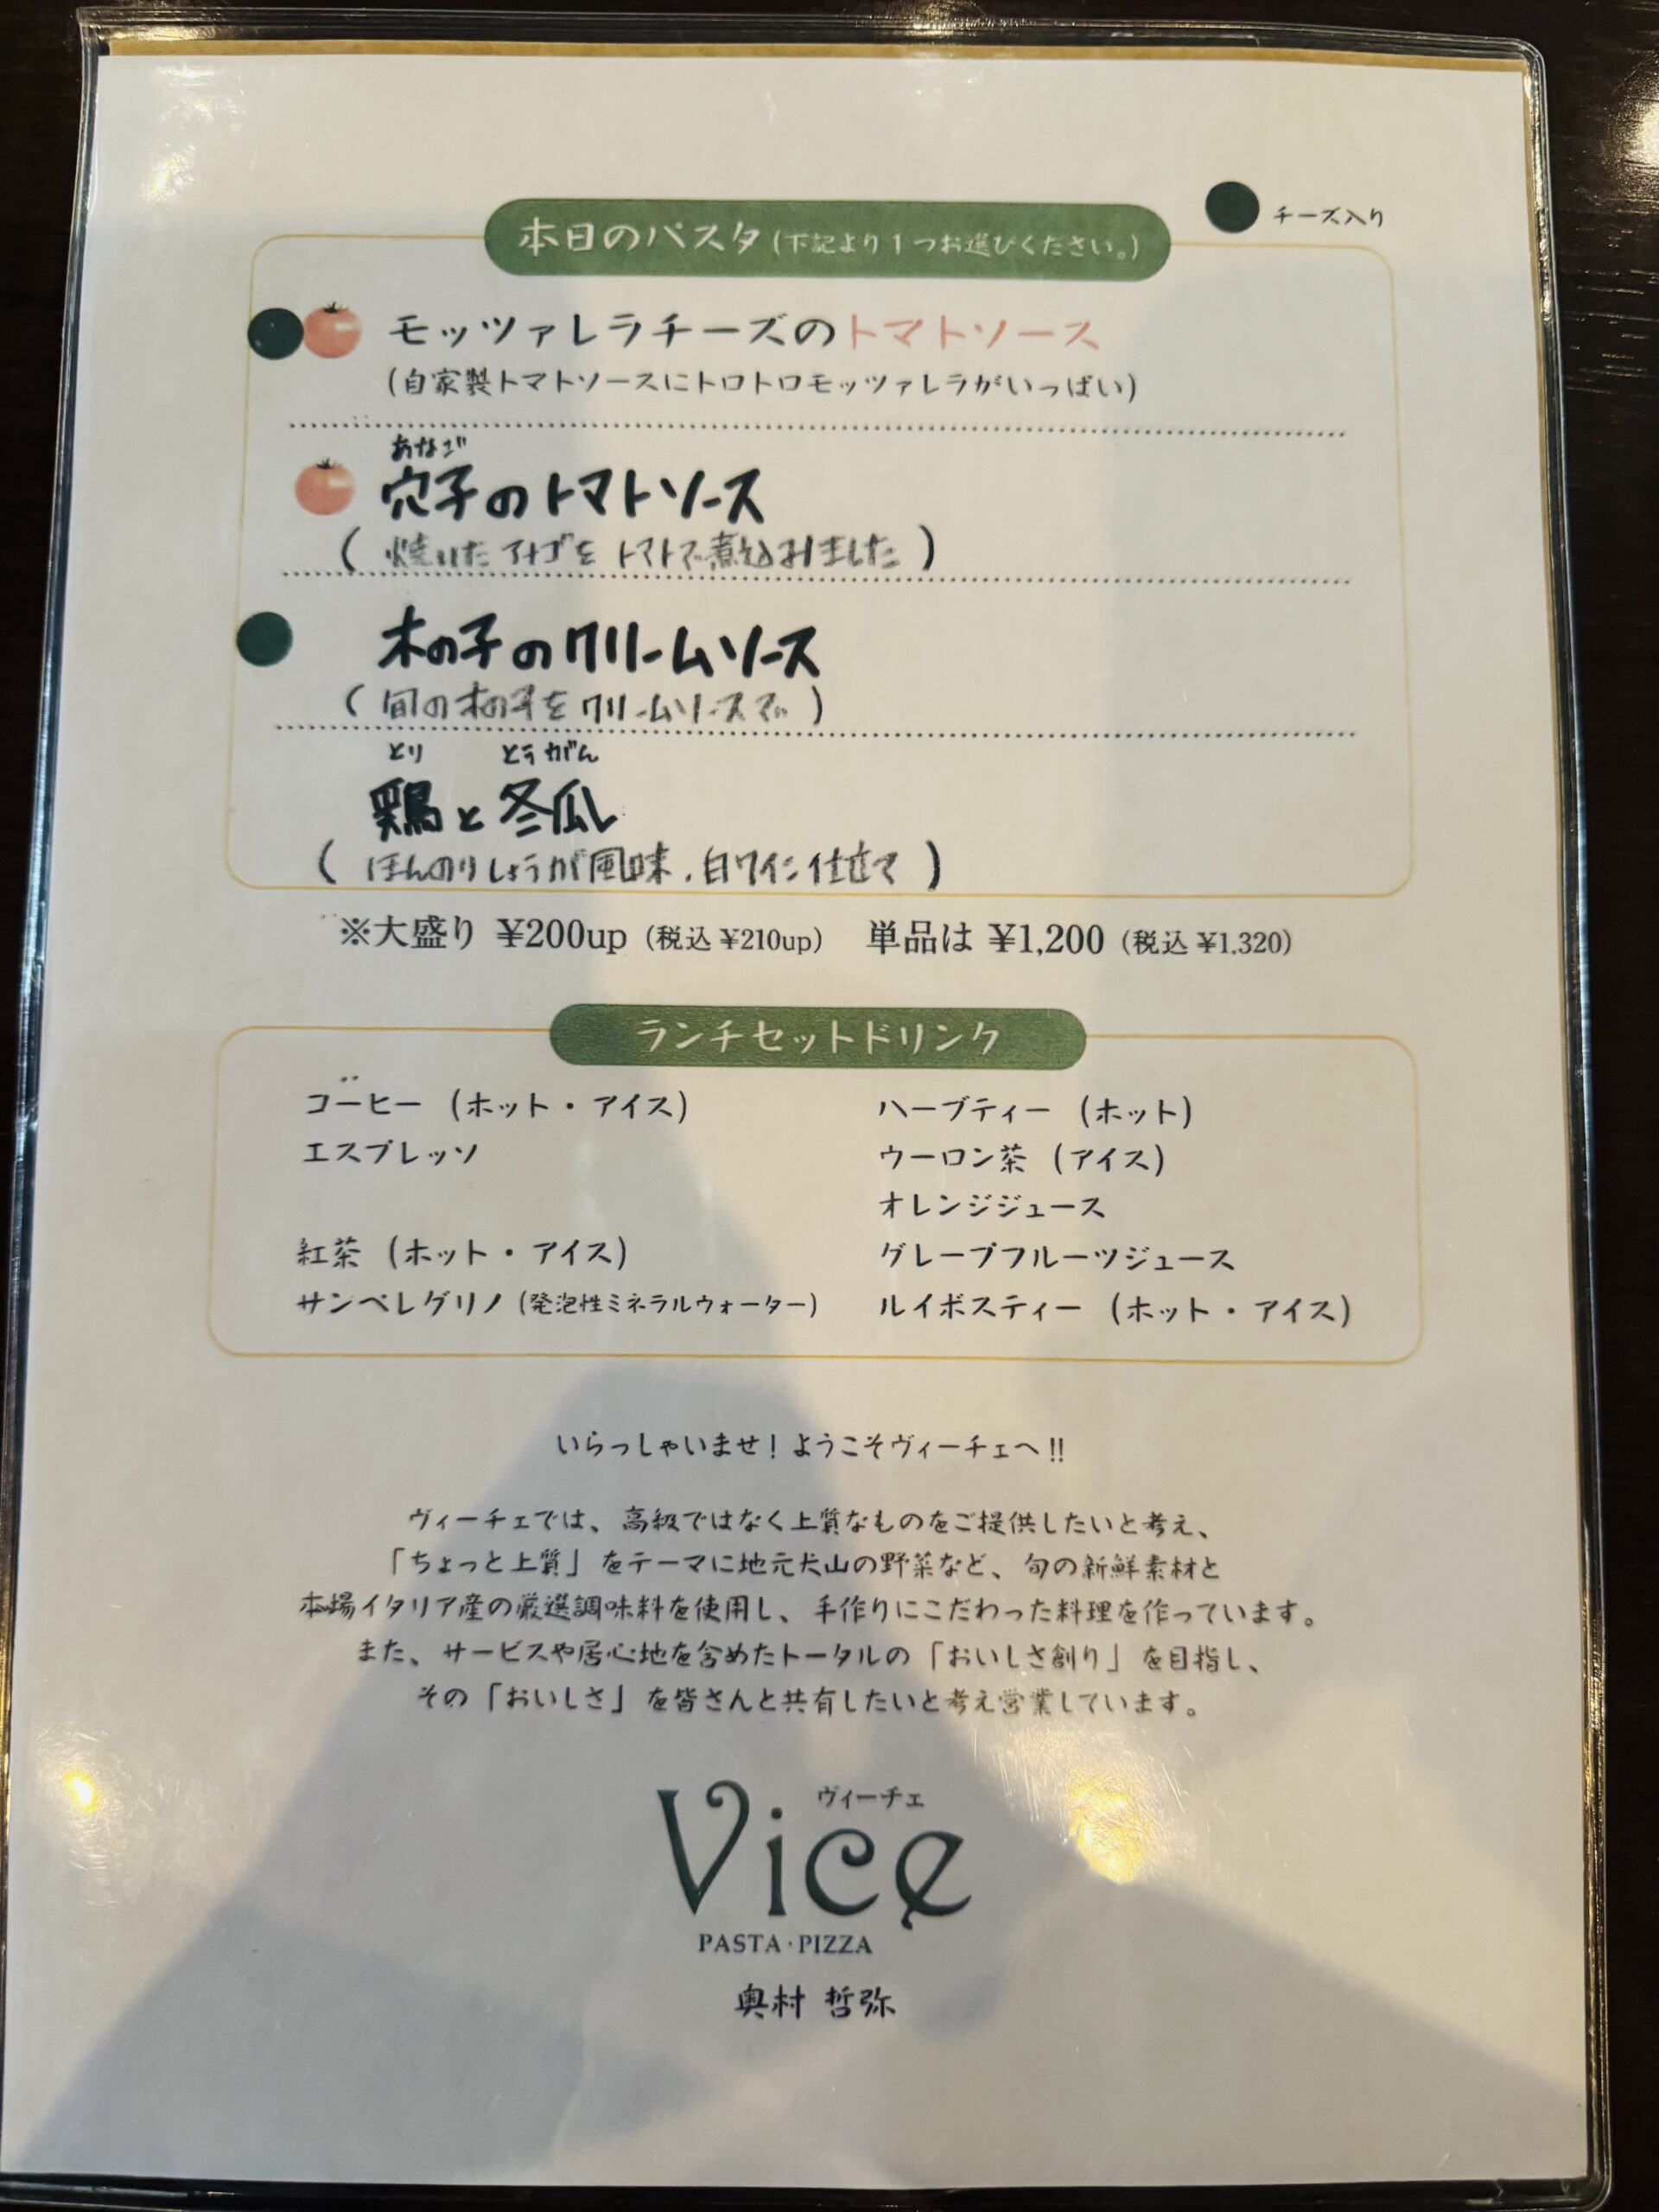 チーズ入り
本日のパスタ(下記より1つお選びください。)
モッツァレラチーズのトマトソース
(自家製トマトソースにトロトロモッツァレラがいっぱい)
あなご
穴子のトマトソース
(焼いたアナゴをトマトで煮込みました)
木の子のクリームソース
(旬の木の子をクリームソースで)
とり とうがん
鶏と冬瓜
(ほんのりしょうが風味、白ワイン仕立て)
※大盛り ¥200up (税込 ¥210up) 単品は ¥1,200 (税込 ¥1,320)
ランチセットドリンク
コーヒー (ホット・アイス)
エスプレッソ
紅茶 (ホット・アイス)
サンペレグリノ (発泡性ミネラルウォーター)
ハーブティー (ホット)
ウーロン茶 (アイス)
オレンジジュース
グレープフルーツジュース
ルイボスティー (ホット・アイス)
いらっしゃいませ!ようこそヴィーチェへ!!
ヴィーチェでは、高級ではなく上質なものをご提供したいと考え、
「ちょっと上質」をテーマに地元犬山の野菜など、旬の新鮮素材と
本場イタリア産の厳選調味料を使用し、手作りにこだわった料理を作っています。
また、サービスや居心地を含めたトータルの「おいしさ創り」を目指し、
その「おいしさ」を皆さんと共有したいと考え営業しています。
ヴィーチェ
Vice
PASTA・PIZZA
奥村 哲弥